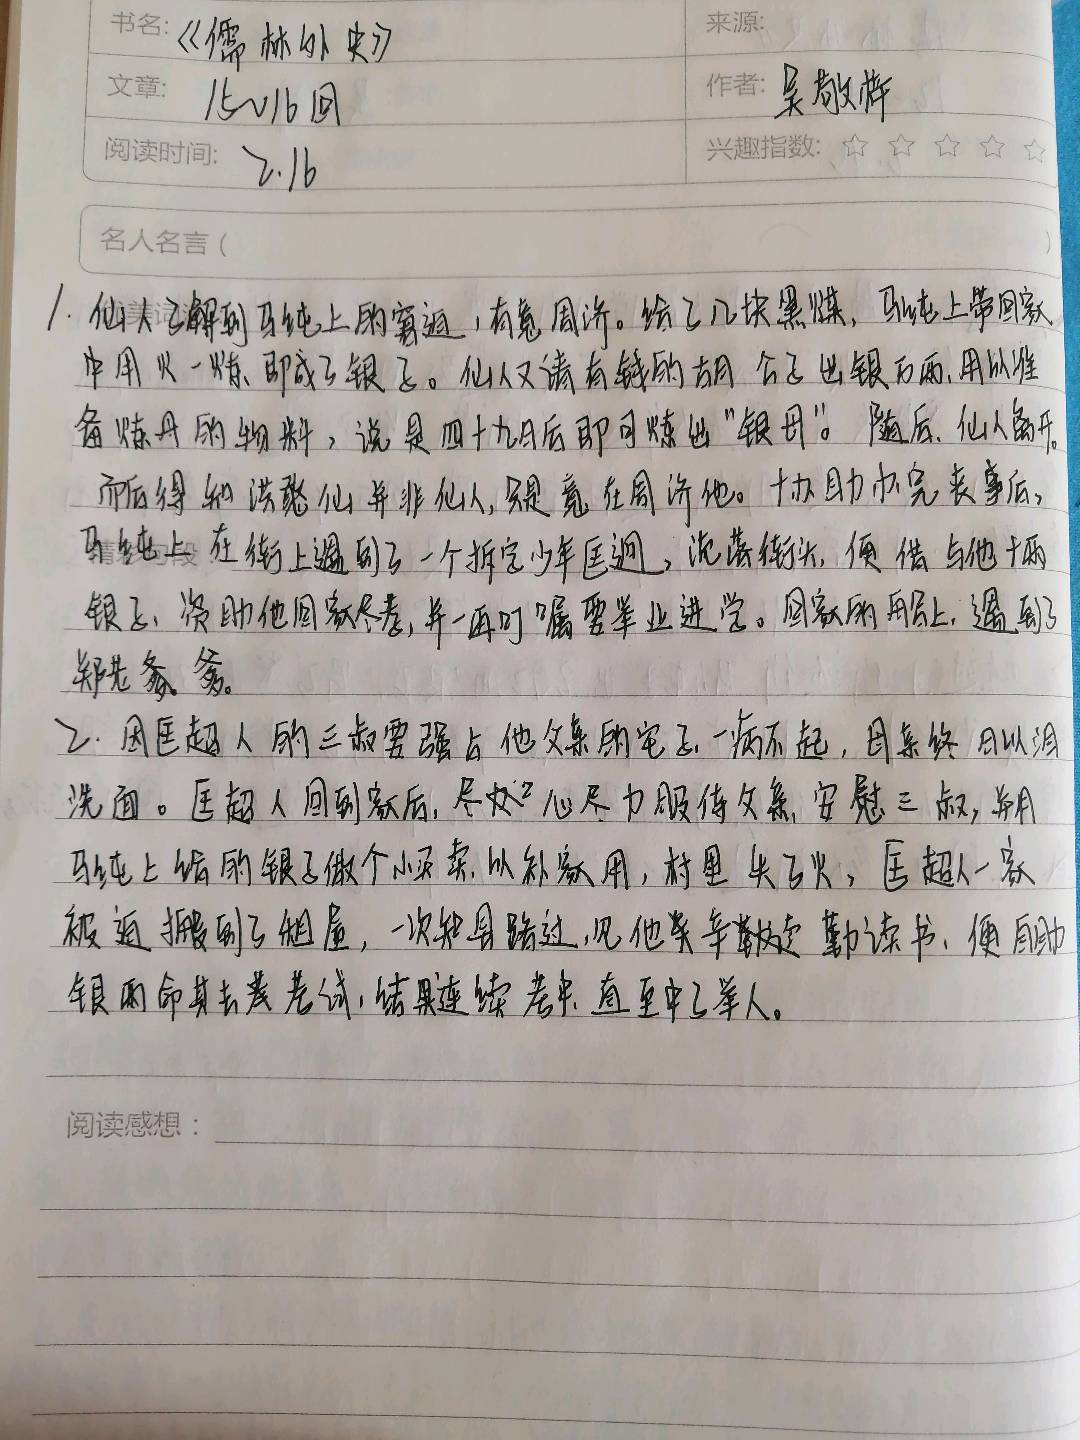 书名: 《儒林外史》 来源:
文章: 15~16回 作者: 吴敬梓
阅读时间: 2.16 兴趣指数: ☆ ☆ ☆ ☆ ☆
名人名言 ( )
1. 仙人了解到马纯上的窘迫，有意周济。给了几块黑煤，马纯上带回家
中用火一炼，即成了银子。仙人又请有钱的胡公子出银万两，用以准
备炼丹的物料，说是四十九日后即可炼出"银母"。随后，仙人离开。
而后得知洪憨仙并非仙人，只是意在周济他。协助办完丧事后，
马纯上在街上遇到了一个拆字少年匡迥，沦落街头，便借与他十两
银子，资助他回家尽孝，并一再叮嘱要举业进学。回家的船上，遇到了
郑老爹。
2. 因匡超人的三叔要强占他父亲的宅子，一病不起，母亲终日以泪
洗面。匡超人回到家后，尽心尽力服侍父亲，安慰三叔，并用
马纯上给的银子做个小买卖，以补家用，村里失了火，匡超人一家
被迫搬到了烟屋，一次知县路过，见他辛勤读书，便自助
银两命其去考试，结果连续考中，直至中了举人。
阅读感想：